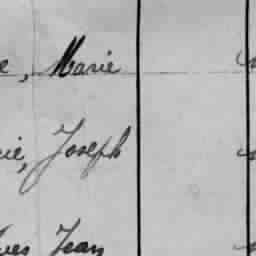 e, Marie
ie, Joseph
ves Jean